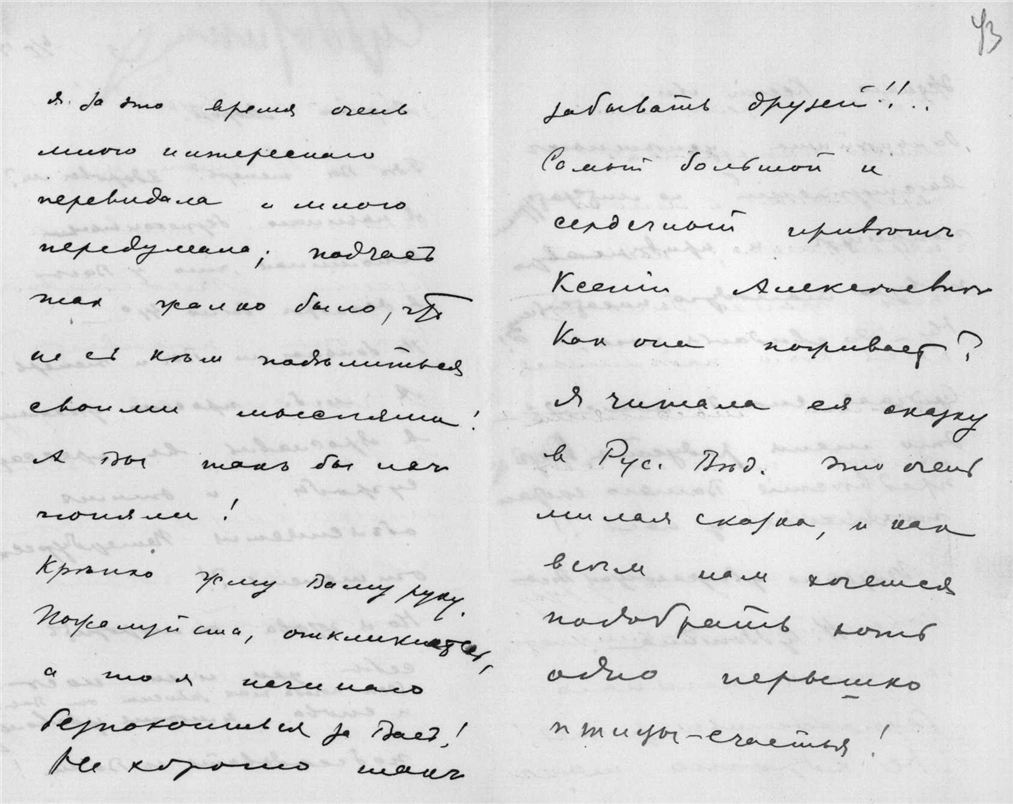 я за это время очень
много интереснаго
перевидала и много
передумала; подчасъ
так жалко было, что
не съ кѣм подѣлиться
своими мыслями!
А Вы такъ бы меня
поняли!
Крѣпко жму Вашу руку.
Пожалуйста, откликнитесь,
а то я начинаю
безпокоиться за Васъ!
Не хорошо такъ
43
забывать друзей!!.
Самый большой и
сердечный привѣтъ
Ксеніи Алексѣевнѣ
Как она поживает?
Я читала ея сказку
в Рус. Вѣд. это очень
милая сказка, и как
всѣм нам хочется
подобрать хоть
одно перышко
птицы-счастья!